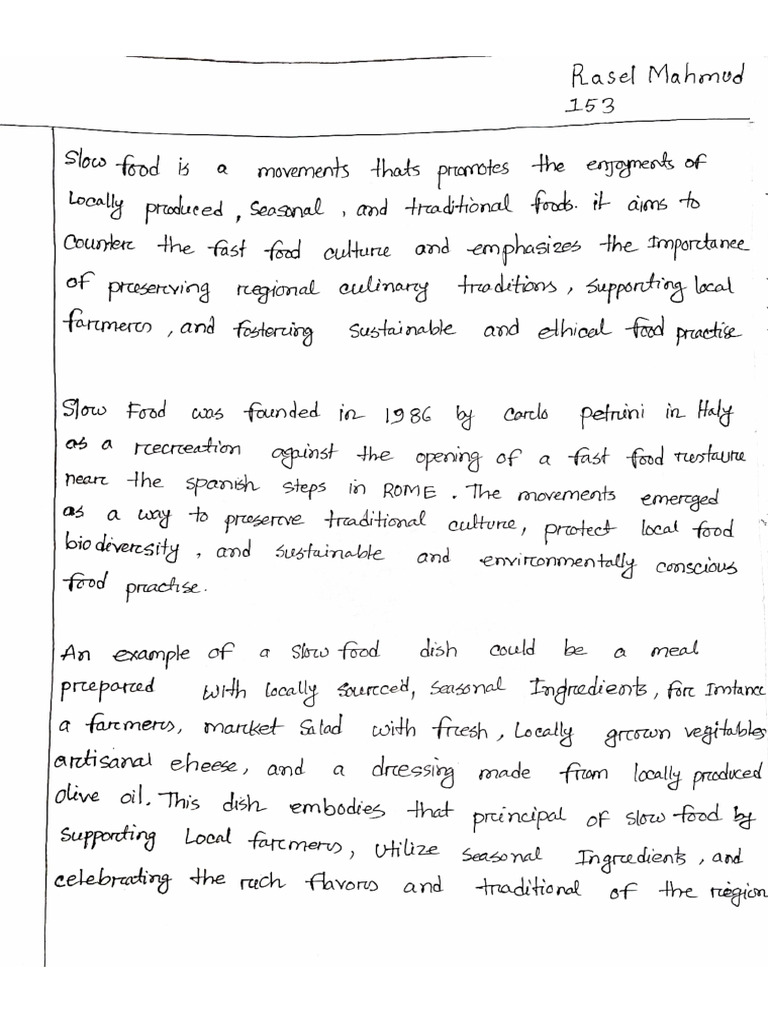 Rasel Mahmud
153
Slow food is a movements thats promotes the enjoyments of
Locally produced, seasonal, and traditional foods. it aims to
Counter the fast food culture and emphasizes the Importance
of preserving regional culinary traditions, supporting local
farmers, and fostering sustainable and ethical food practise
Slow Food was founded in 1986 by Carlo Petrini in Italy
as a recreation against the opening of a fast food restaure
near the spanish steps in ROME. The movements emerged
as a way to preserve traditional culture, protect local food
biodiversity, and sustainable and environmentally conscious
food practise.
An example of a slow food dish could be a meal
prepared with locally sourced, seasonal Ingredients, for Instance
a farmers, market Salad with fresh, Locally grown vegitables
artisanal cheese, and a dressing made from locally produced
olive oil. This dish embodies that principal of slow food by
supporting Local farmers, utilize seasonal Ingredients, and
celebrating the rich flavors and traditional of the region